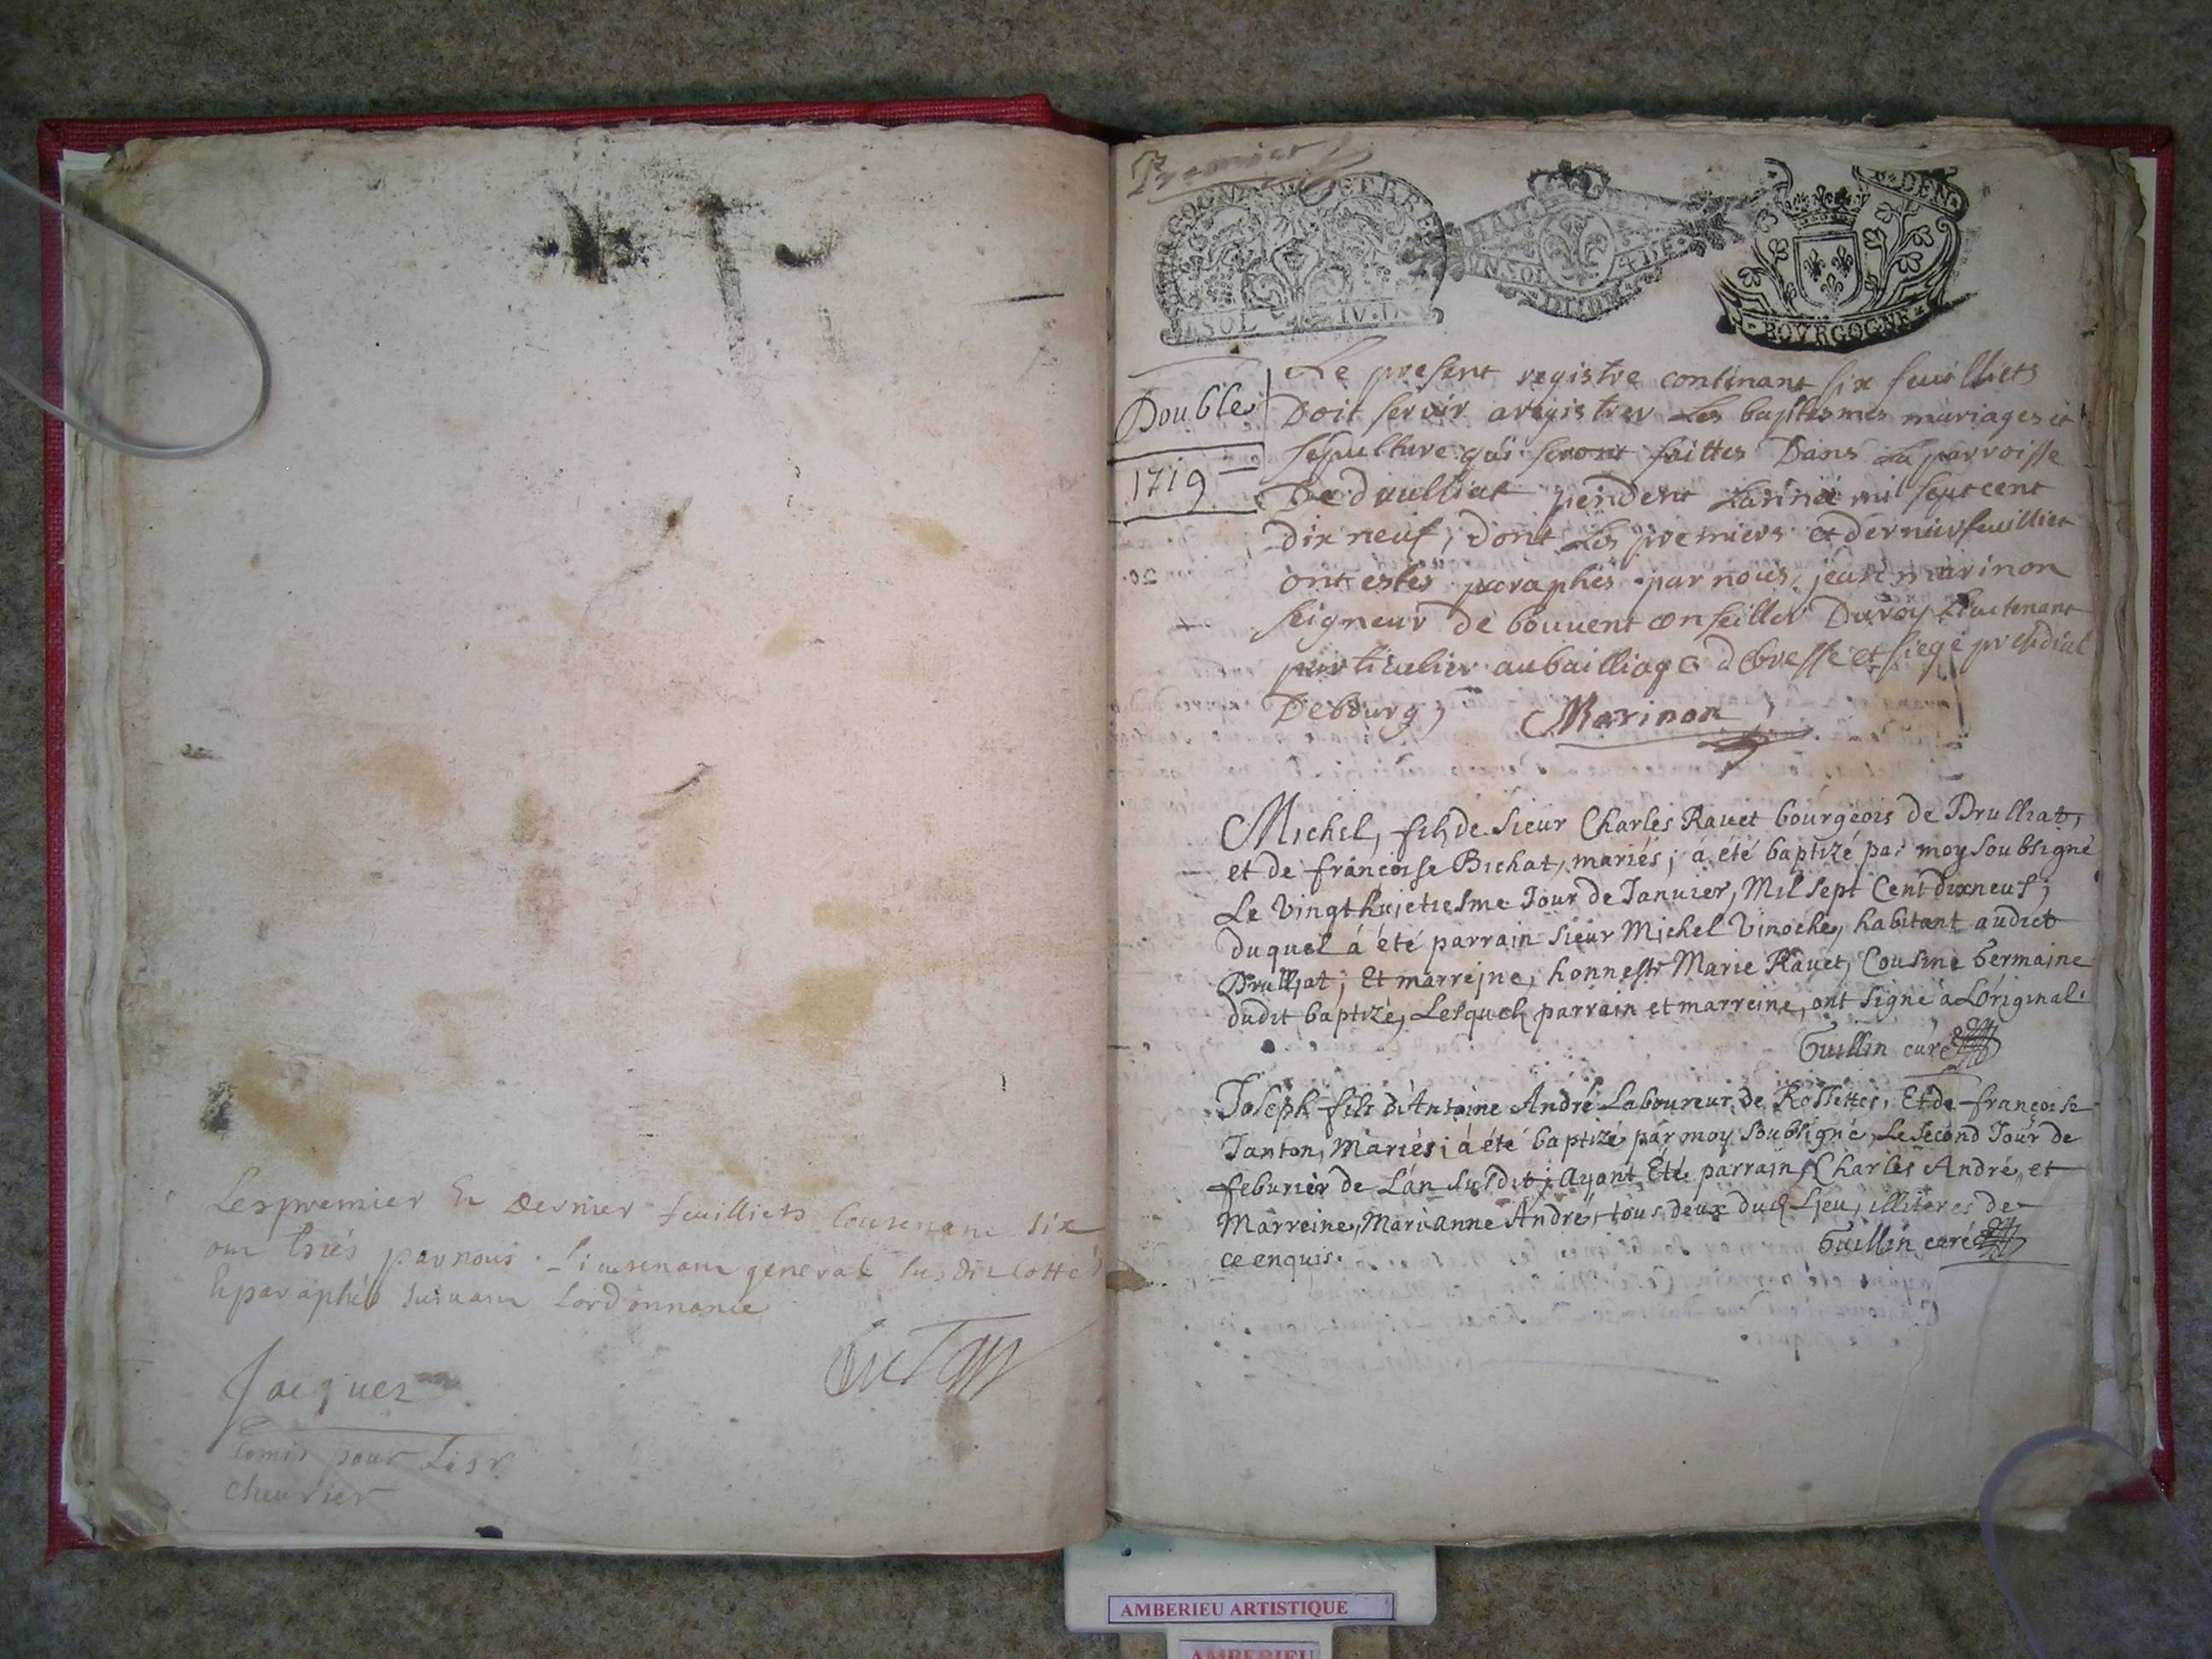 Les premier et dernier feuilliets contenant six
ont estés par nous Lieutenant general susdit cotté
et paraphés suivant Lordonnance
Jacquez
Comis pour Le sr
cheurier
Premier
BOURGOGNE ET BRE
SOL IV.D
VN.SOL 4 DE
DIJON
P. DEND
BOVRGOGNE
Double
1719
Le present registre contenant six feuilliets
Doit servir a registrer Les baptesmes mariages et
sepulture qui seront faittes Dans La parroisse
De drulliat pendent Lannéé mil sept cent
dix neuf, Dont Les premiers et dernier feuilliet
ont estés paraphés par nous, jean marinon
seigneur de bouuent conseiller Du roy Lieutenant
particulier au bailliage de bresse et siege presidial
De bourg
Marinon
Michel, filz de Sieur Charles Rauet bourgeois de Drulliat,
et de françoise Bichat, mariés; á été baptizé par moy soubsigné
Le vingt huictiesme Jour de Januier, Mil sept Cent dixneuf;
duquel á été parrain Sieur Michel Vinoche, habitant audict
Drulliat; Et marreine, honneste Marie Rauet, Cousine germaine
dudit baptizé, Lesquelz parrain et marreine, ont signé a L'original.
Guillin curé
Joseph fils d'Antoine André Laboureur de Rossettes, Et de françoise
Tanton, Mariés; á été baptizé par moy soubsigné, Le second Jour de
feburier de L'an susdit; Ayant Eté parrain Charles André, et
Marreine, Marianne André, tous deux dud Lieu, illiteres de
ce enquis.
Guillin curé
AMBERIEU ARTISTIQUE
AMBERIEU